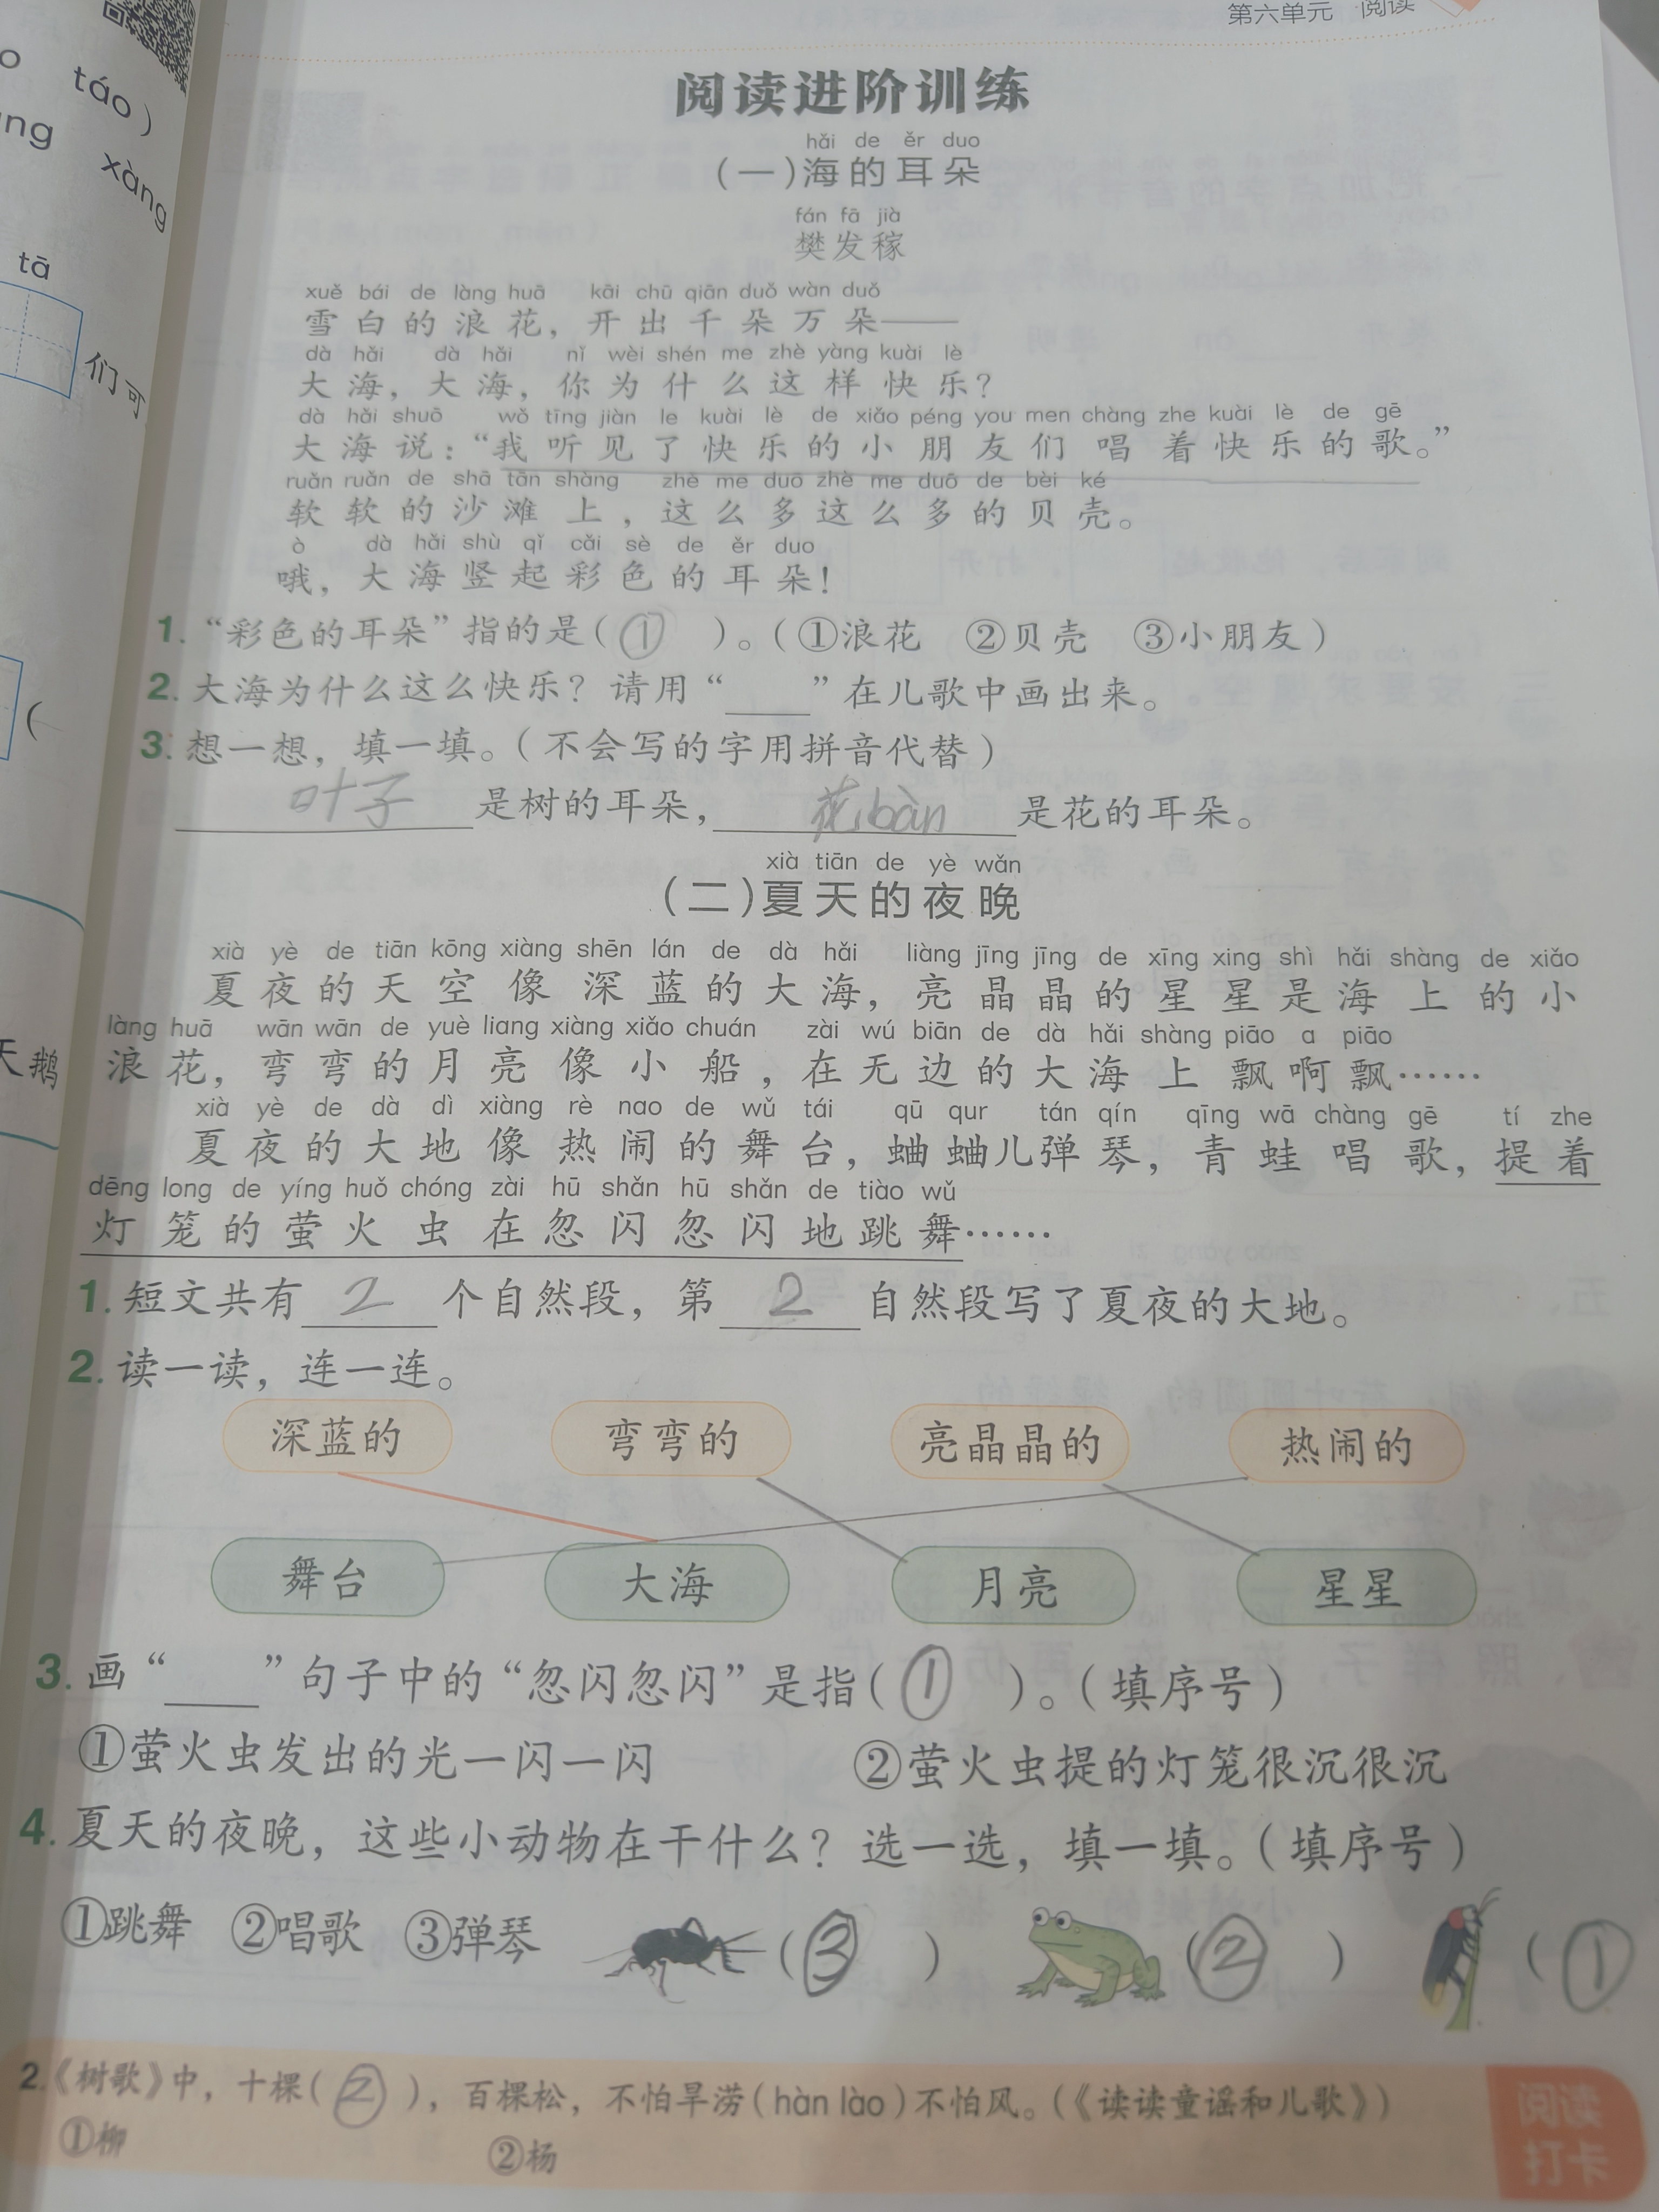 táo）
ng
xàng
tā
们可
（
天鹅
第六单元 阅读
阅读进阶训练
hǎi de ěr duo
（一）海的耳朵
fán fā jià
樊发稼
xuě bái de làng huā kāi chū qiān duǒ wàn duǒ
雪白的浪花，开出千朵万朵——
dà hǎi dà hǎi nǐ wèi shén me zhè yàng kuài lè
大海，大海，你为什么这样快乐？
dà hǎi shuō wǒ tīng jiàn le kuài lè de xiǎo péng you men chàng zhe kuài lè de gē
大海说：“我听见了快乐的小朋友们唱着快乐的歌。”
ruǎn ruǎn de shā tān shàng zhè me duō zhè me duō de bèi ké
软软的沙滩上，这么多这么多的贝壳。
ò dà hǎi shù qǐ cǎi sè de ěr duo
哦，大海竖起彩色的耳朵！
1.“彩色的耳朵”指的是（① ）。（①浪花 ②贝壳 ③小朋友）
2.大海为什么这么快乐？请用“___”在儿歌中画出来。
3.想一想，填一填。（不会写的字用拼音代替）
叶子是树的耳朵，花bàn是花的耳朵。
xià tiān de yè wǎn
（二）夏天的夜晚
xià yè de tiān kōng xiàng shēn lán de dà hǎi liàng jīng jīng de xīng xing shì hǎi shàng de xiǎo
夏夜的天空像深蓝的大海，亮晶晶的星星是海上的小
làng huā wān wān de yuè liang xiàng xiǎo chuán zài wú biān de dà hǎi shàng piāo a piāo
浪花，弯弯的月亮像小船，在无边的大海上飘啊飘……
xià yè de dà dì xiàng rè nao de wǔ tái qū qur tán qín qīng wā chàng gē tí zhe
夏夜的大地像热闹的舞台，蛐蛐儿弹琴，青蛙唱歌，提着
dēng long de yíng huǒ chóng zài hū shǎn hū shǎn de tiào wǔ
灯笼的萤火虫在忽闪忽闪地跳舞……
1.短文共有 2 个自然段，第 2 自然段写了夏夜的大地。
2.读一读，连一连。
深蓝的 弯弯的 亮晶晶的 热闹的
舞台 大海 月亮 星星
3.画“___”句子中的“忽闪忽闪”是指（① ）。（填序号）
①萤火虫发出的光一闪一闪 ②萤火虫提的灯笼很沉很沉
4.夏天的夜晚，这些小动物在干什么？选一选，填一填。（填序号）
①跳舞 ②唱歌 ③弹琴 （③ ） （② ） （①
2.《树歌》中，十棵（② ），百棵松，不怕旱涝（hàn lào）不怕风。（《读读童谣和儿歌》）
①柳 ②杨
阅读
打卡